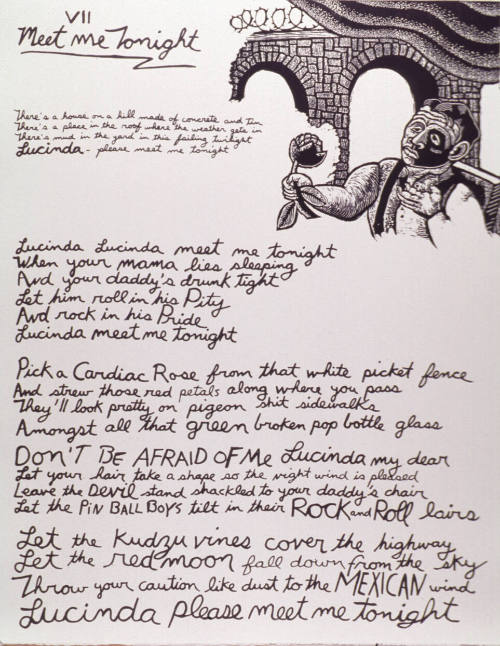 VII
Meet me Tonight
There's a house on a hill made of concrete and tin
There's a place in the roof where the weather gets in
There's mud in the yard in this failing twilight
Lucinda - please meet me tonight
Lucinda Lucinda meet me tonight
When your mama lies sleeping
And your daddy's drunk tight
Let him roll in his Pity
And rock in his Pride
Lucinda meet me tonight
Pick a Cardiac Rose from that white picket fence
And strew those red petals along where you pass
They'll look pretty on pigeon shit sidewalks
Amongst all that green broken pop bottle glass
DON'T BE AFRAID OF Me Lucinda my dear
Let your hair take a shape so the night wind is pleased
Leave the DEVIL stand shackled to your daddy's chair
Let the PIN BALL BOYS tilt in their ROCK and ROLL lairs
Let the Kudzu vines cover the highway
Let the red moon fall down from the sky
Throw your caution like dust to the MEXICAN wind
Lucinda please meet me tonight